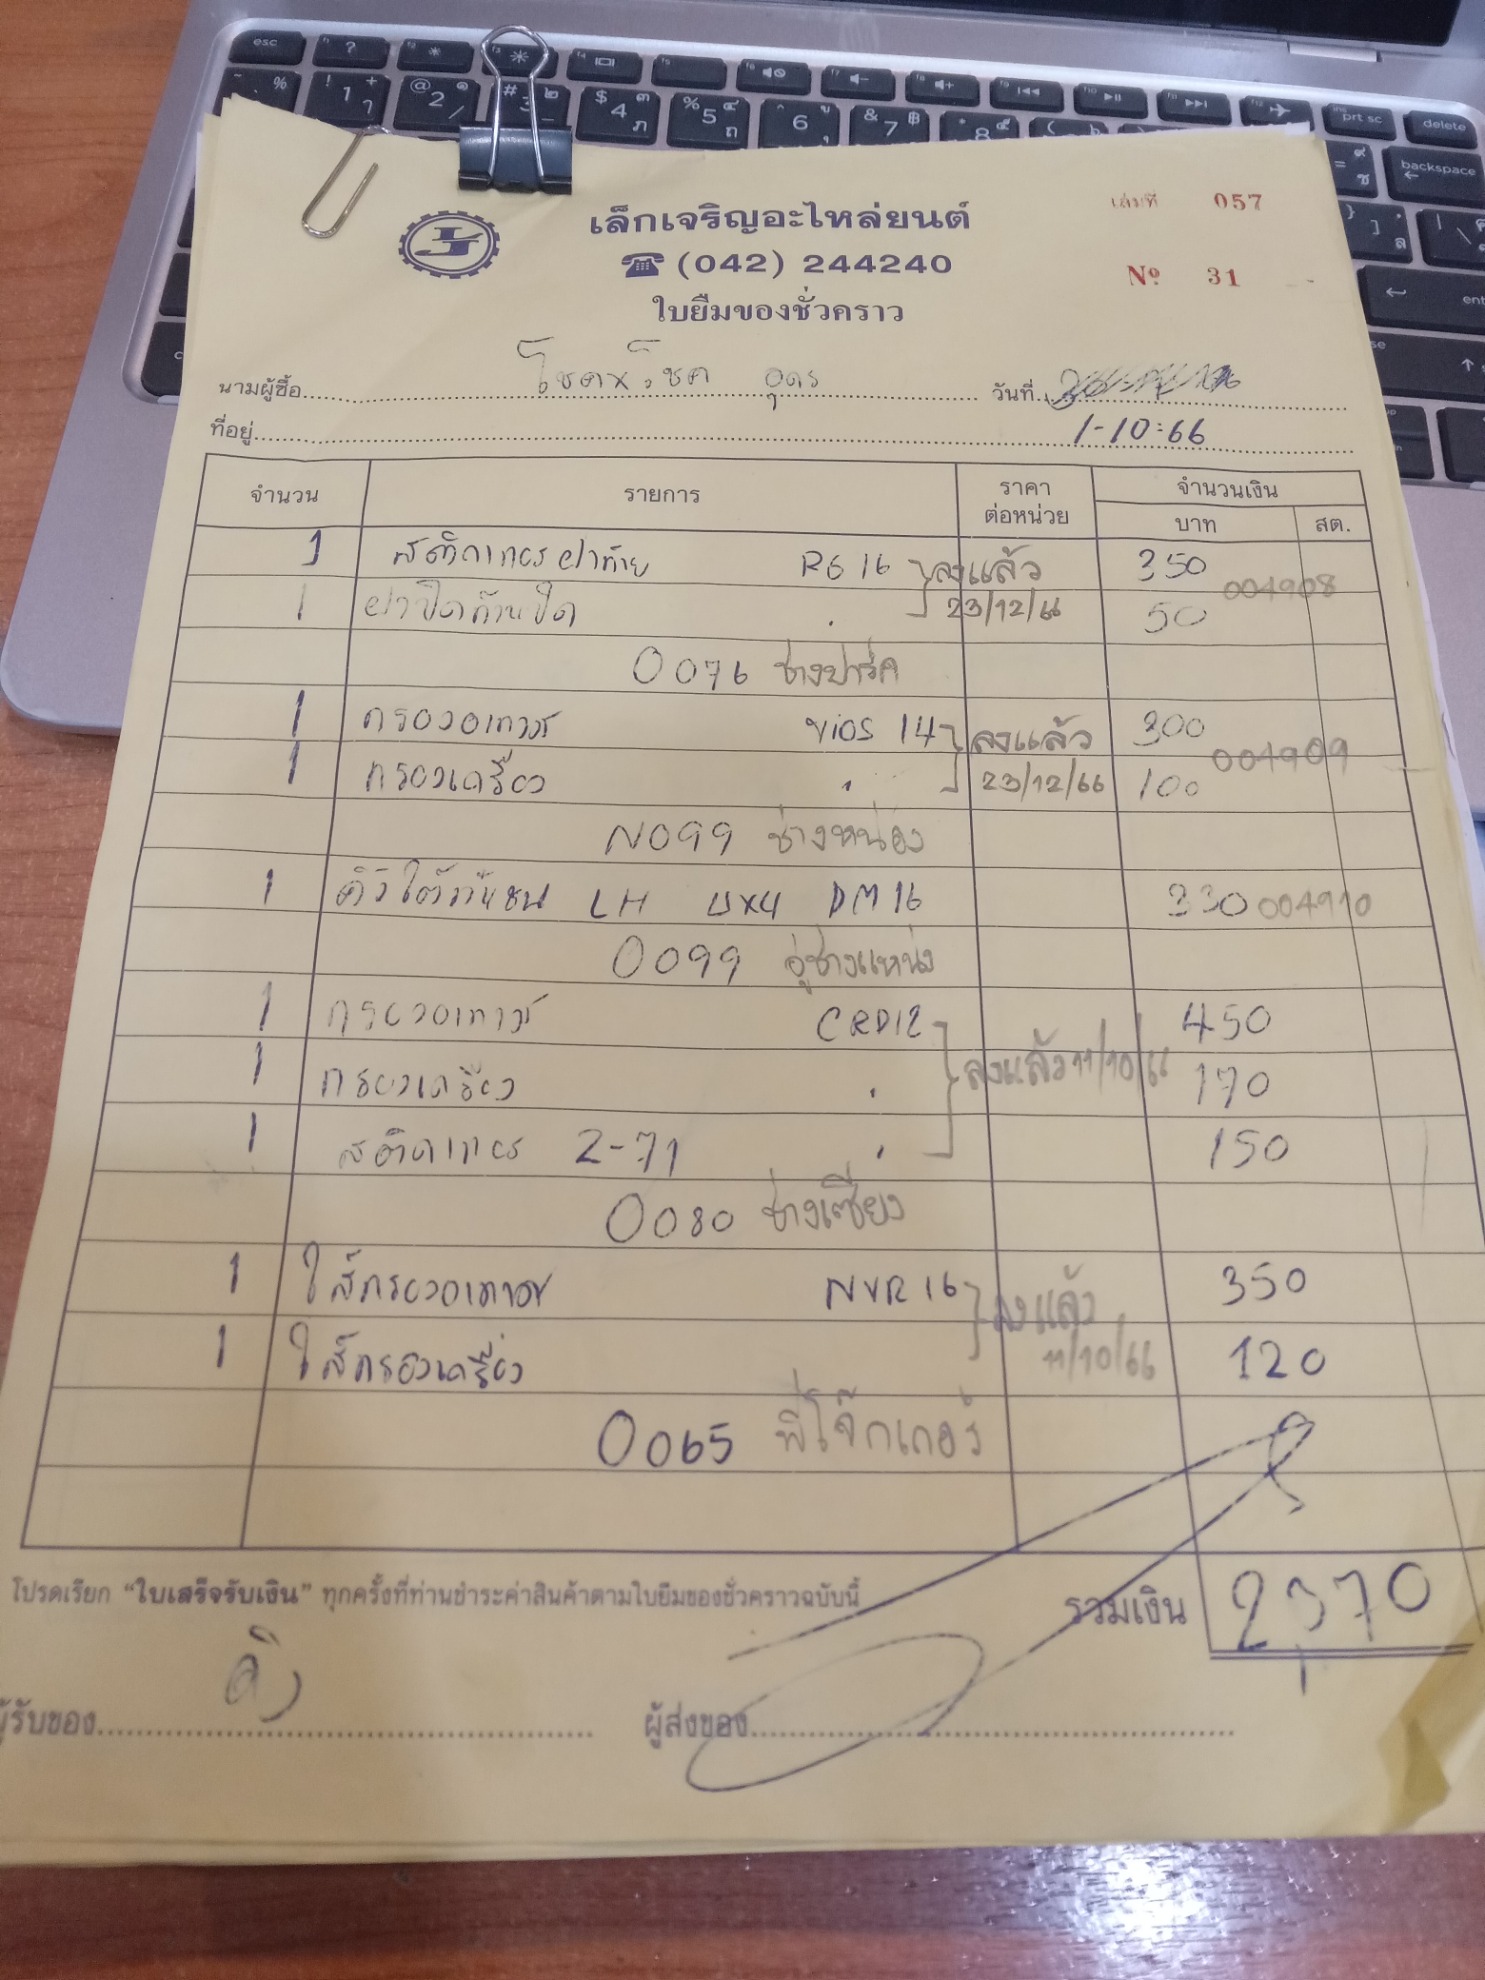 เล่มที่ 057
เล็กเจริญอะไหล่ยนต์
(042) 244240
Nº 31
ใบยืมของชั่วคราว
นามผู้ซื้อ โชคชัย อุดร วันที่
ที่อยู่ 1-10-66
จำนวน รายการ ราคาต่อหน่วย จำนวนเงิน
บาท สต.
1 สติกเกอร์ฝาท้าย RG 16 ลงแล้ว 350 004908
1 23/12/66 50
0076 ช่างปาร์ค
1 กรองอากาศ VIOS 14 ลงแล้ว 300 004909
1 กรองเครื่อง 23/12/66 100
N099 ช่างหน่อง
1 LH 4x4 DM16 330 004910
0099 อู่ช่างแหน่ง
1 กรองอากาศ CRD12 450
1 กรองเครื่อง ลงแล้ว 11/10/66 170
1 สติกเกอร์ 2-71 150
0080 ช่างเซียง
1 ไส้กรองอากาศ NVR 16 ลงแล้ว 350
1 ไส้กรองเครื่อง 11/10/66 120
0065 พี่โจ๊กเกอร์
โปรดเรียก “ใบเสร็จรับเงิน” ทุกครั้งที่ท่านชำระค่าสินค้าตามใบยืมของชั่วคราวฉบับนี้ รวมเงิน 2370
ผู้รับของ ผู้ส่งของ